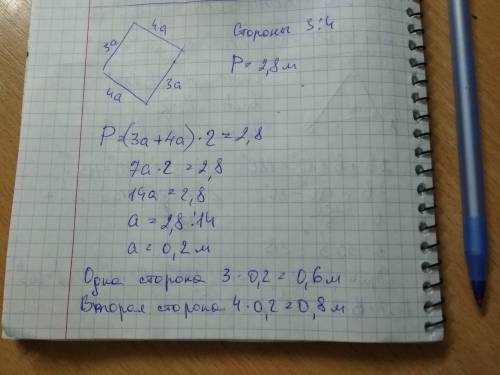 4a
3a
3a
4a
Стороны 3:4
P = 2,8 м
P=(3a+4a)·2=2,8
7a·2=2,8
14a=2,8
a=2,8:14
a=0,2 м
Одна сторона 3·0,2=0,6 м
Вторая сторона 4·0,2=0,8 м